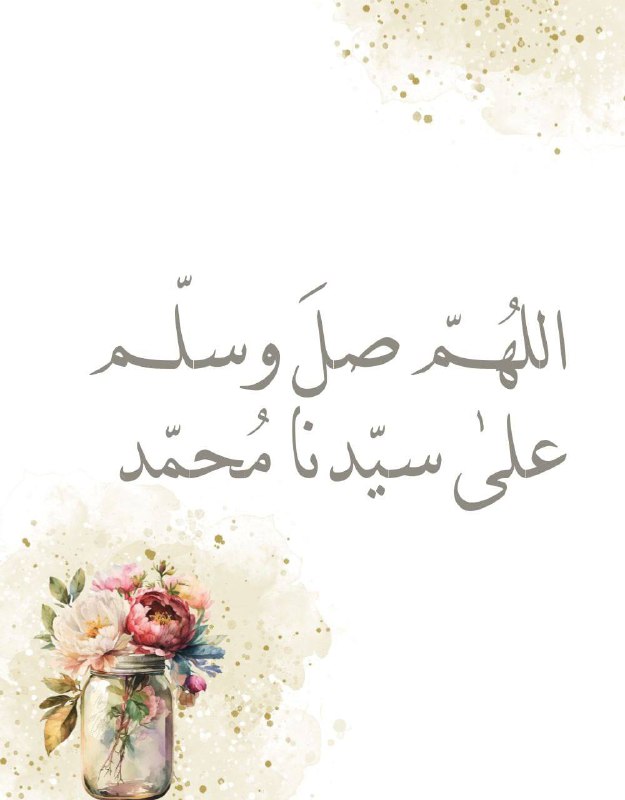 اللهُمّ صلَ وسلّم
علىٰ سيّدنا مُحمّد